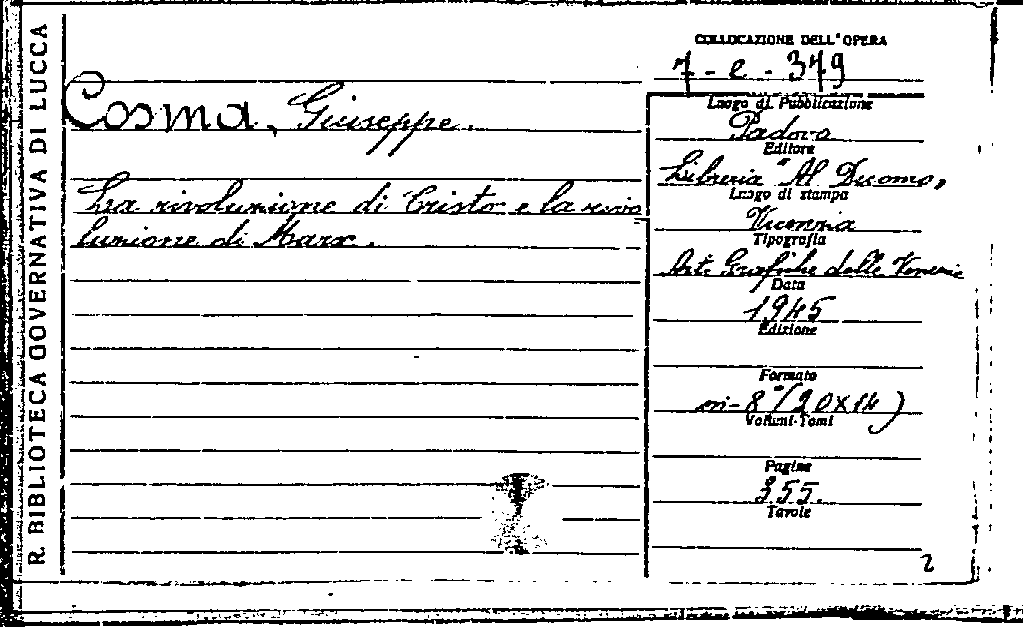 R. BIBLIOTECA GOVERNATIVA DI LUCCA
COLLOCAZIONE DELL'OPERA
7 - e - 379
Cosma, Giuseppe.
La rivoluzione di Cristo e la rivo
luzione di Marx.
Luogo di Pubblicazione
Padova
Editore
Libreria "Al Duomo"
Luogo di stampa
Vicenza
Tipografia
Arti Grafiche delle Venezie
Data
1945
Edizione
Formato
in-8° (20x14)
Volumi-Tomi
Pagine
355.
Tavole
2